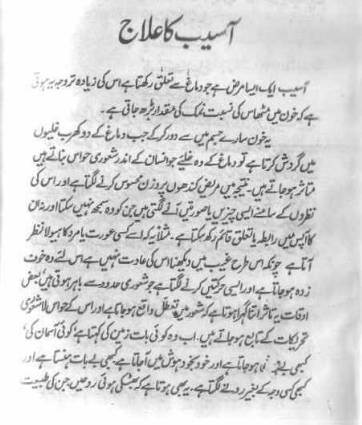 آسیب کا علاج
آسیب ایک ایسا مرض ہے جو دماغ سے تعلق رکھتا ہے اس کی زیادہ تر وجہ یہ ہوتی
ہے کہ خون میں مٹھاس کی نسبت نمک کی مقدار بڑھ جاتی ہے۔
یہ خون سارے جسم میں سے دور کر کے جب دماغ کے دو کھرب خلیوں
میں گردش کرتا ہے تو دماغ کے وہ خلیئے جو انسان کے اندر شعوری حواس بناتے ہیں
متاثر ہو جاتے ہیں۔ نتیجہ میں مریض کندھوں پر وزن محسوس کرنے لگتا ہے اور اس کی
نظروں کے سامنے ایسی چیزیں یا صورتیں آنے لگتی ہیں جن کو وہ سمجھ نہیں سکتا اور نہ ان
کا آپس میں رابطہ یا تعلق قائم رکھ سکتا ہے۔ مثلاً یہ کہ اسے کسی عورت یا مرد کا ہیولا نظر
آتا ہے چونکہ اس طرح غیب میں دیکھنا اس کی عادت نہیں ہے اس لئے وہ خوف
زدہ ہو جاتا ہے اور ایسی حرکتیں کرنے لگتا ہے جو شعوری حدود سے باہر ہوتی ہیں بعض
اوقات یہ تاثر اتنا گہرا ہوتا ہے کہ شعور میں تعطل واقع ہو جاتا ہے اور اس کے حواس لاشعوری
تحریکات کے تابع ہو جاتے ہیں۔ اب وہ کوئی بات زمین کی کہتا ہے کوئی آسمان کی
کبھی ہو جاتا ہے اور خود بخود ہوش میں آ جاتا ہے کبھی بے بات ہنستا ہے اور
کبھی کسی وجہ کے بغیر رونے لگتا ہے۔ یہ بھی ہوتا ہے کہ بھٹکی ہوئی روحیں جن کی طبیعت